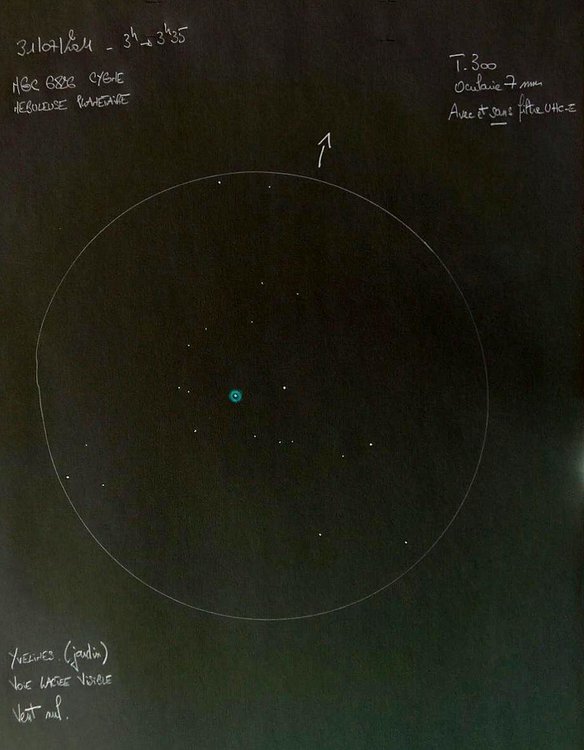 31/07/2011 - 3h → 3h35
NGC 6826 CYGNE
NEBULEUSE PLANETAIRE
T.300
Oculaire 7 mm
Avec et sans filtre UHC-E
YVELINES (jardin)
VOIE LACTEE VISIBLE
Vent nul.